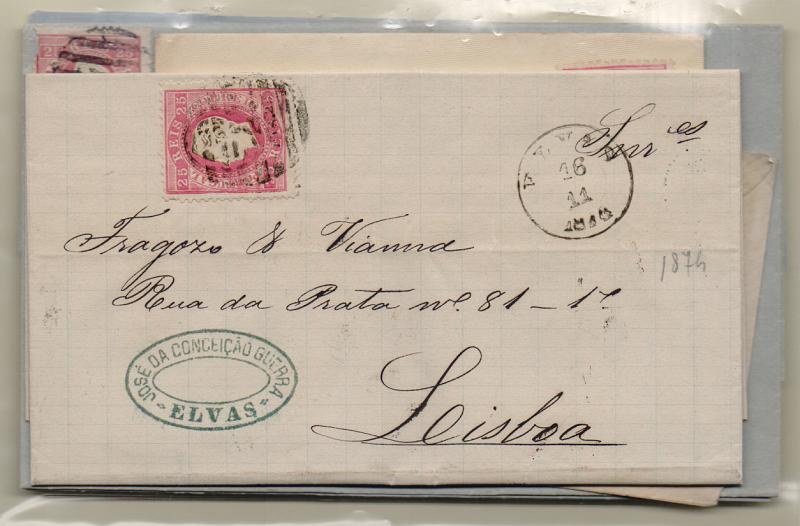 25 REIS 25
Snr es
ELVAS
16
11
Fragozo & Vianna
Rua da Prata nº. 81 - 1º
1874
JOSÉ DA CONCEIÇÃO GUERRA
ELVAS
Lisboa